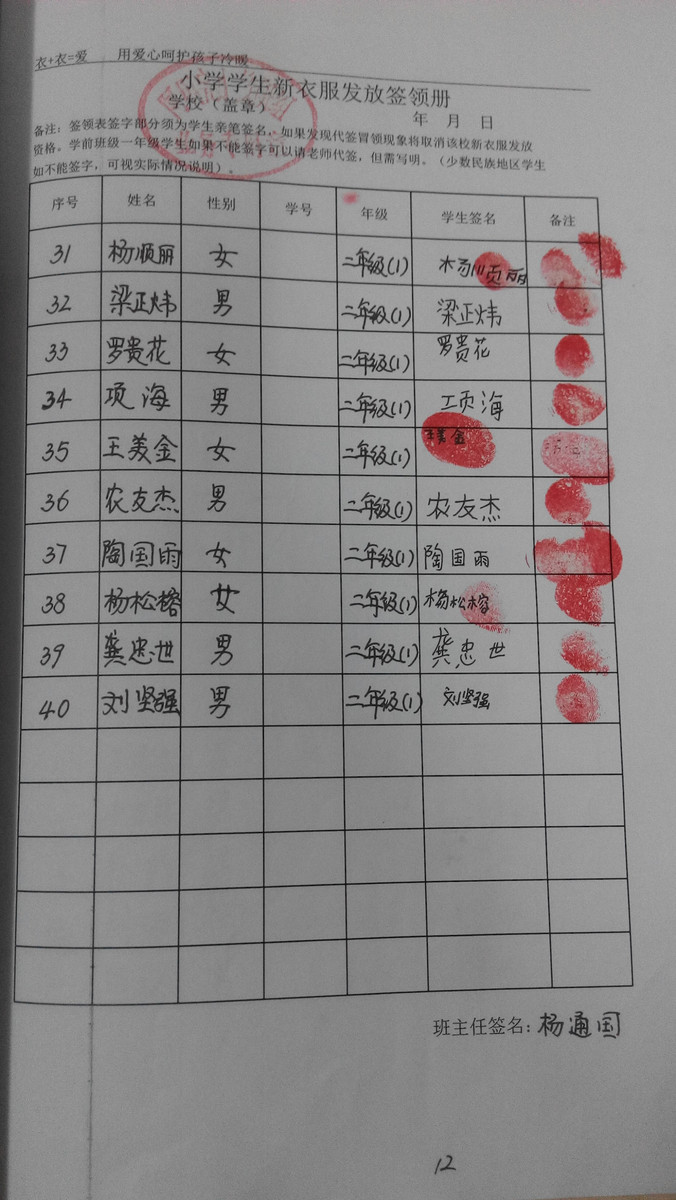 衣+衣=爱 用爱心呵护孩子冷暖
小学学生新衣服发放签领册
学校（盖章） 年 月 日
备注：签领表签字部分须为学生亲笔签名，如果发现代签冒领现象将取消该校新衣服发放
资格。学前班级一年级学生如果不能签字可以请老师代签，但需写明。（少数民族地区学生
如不能签字，可视实际情况说明）。
序号 姓名 性别 学号 年级 学生签名 备注
31 杨顺丽 女 二年级(1) 杨顺丽
32 梁正炜 男 二年级(1) 梁正炜
33 罗贵花 女 二年级(1) 罗贵花
34 项海 男 二年级(1) 项海
35 王美金 女 二年级(1) 王美金
36 农友杰 男 二年级(1) 农友杰
37 陶国雨 女 二年级(1) 陶国雨
38 杨松榕 女 二年级(1) 杨松榕
39 龚忠世 男 二年级(1) 龚忠世
40 刘坚强 男 二年级(1) 刘坚强
班主任签名：杨通国
12